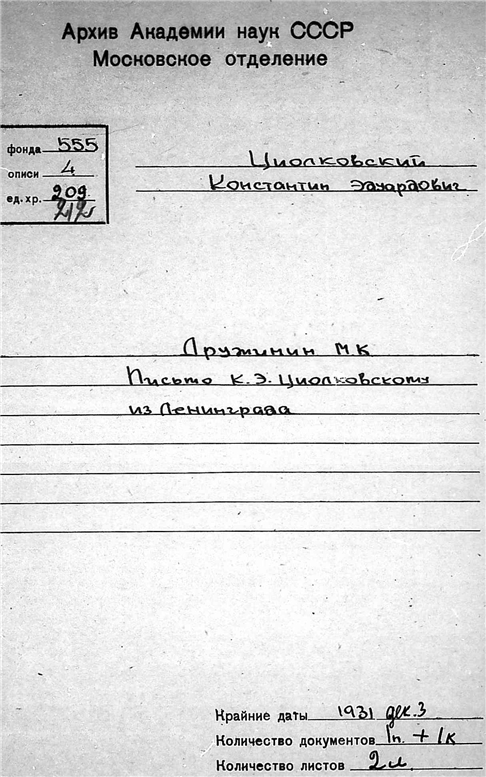 Архив Академии наук СССР
Московское отделение
фонда 555
описи 4
ед. хр. 209
212
Циолковский
Константин Эдуардович
Дружинин М К
Письмо К. Э. Циолковскому
из Ленинграда
Крайние даты 1931 дек. 3
Количество документов 1п. + 1к
Количество листов 2л.